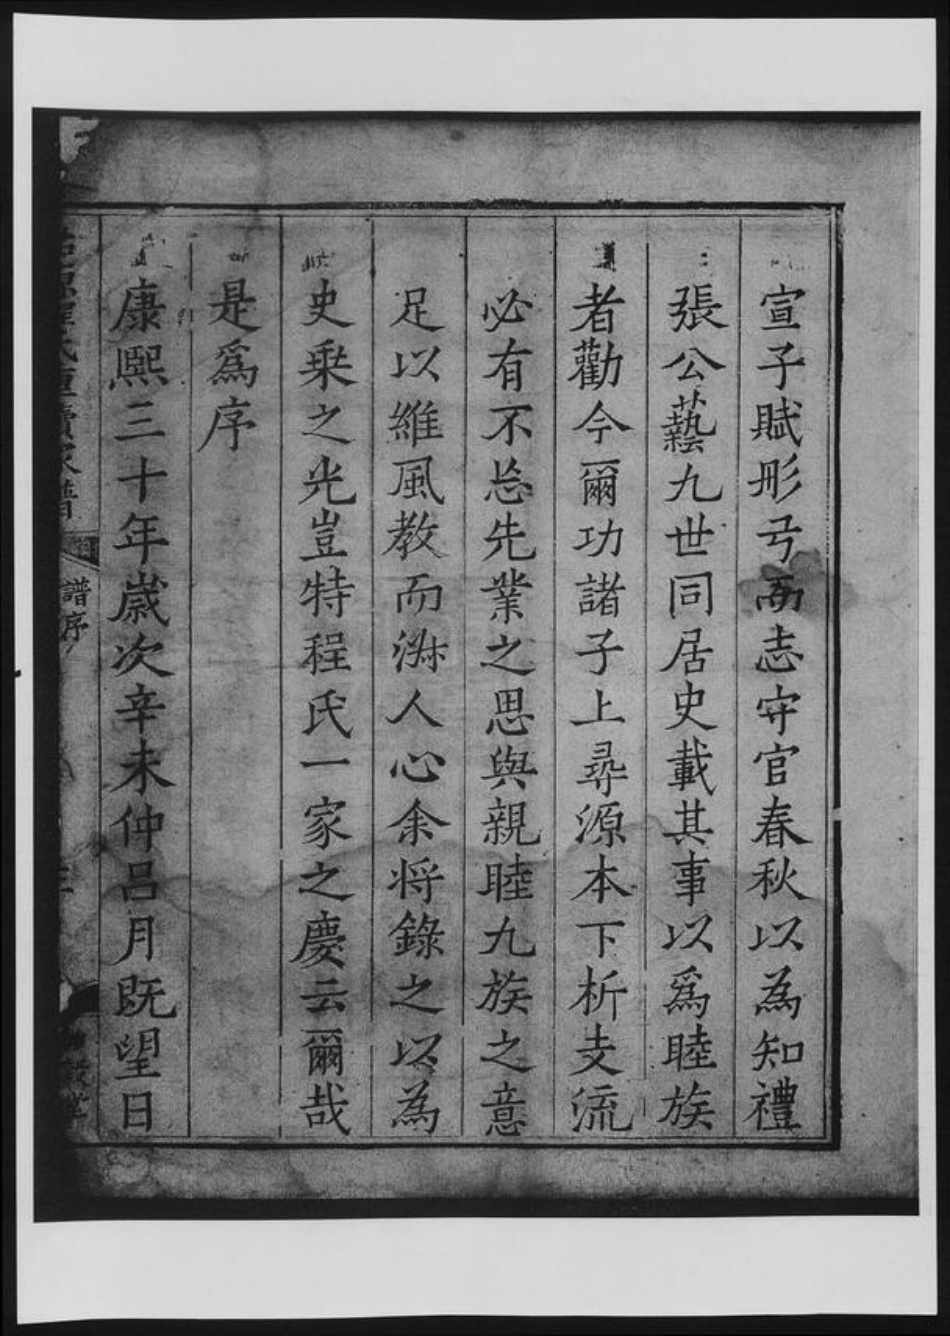 宣子賦彤弓而志守官春秋以為知禮
張公藝九世同居史載其事以爲睦族
者勸今爾功諸子上尋源本下析支流
必有不忘先業之思與親睦九族之意
足以維風教而淑人心余将錄之以為
史乘之光豈特程氏一家之慶云爾哉
是爲序
康熙三十年嵗次辛未仲吕月既望日
譜序